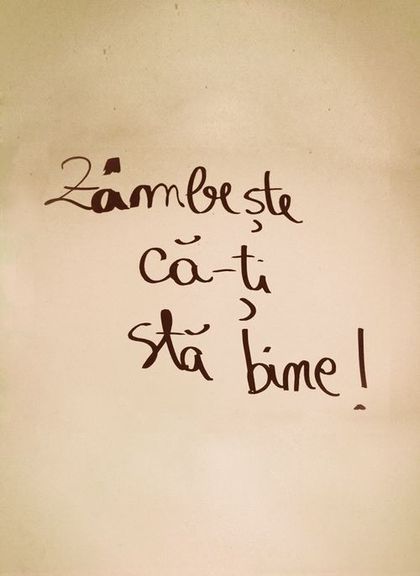 Zâmbește
că-ți
stă bine!